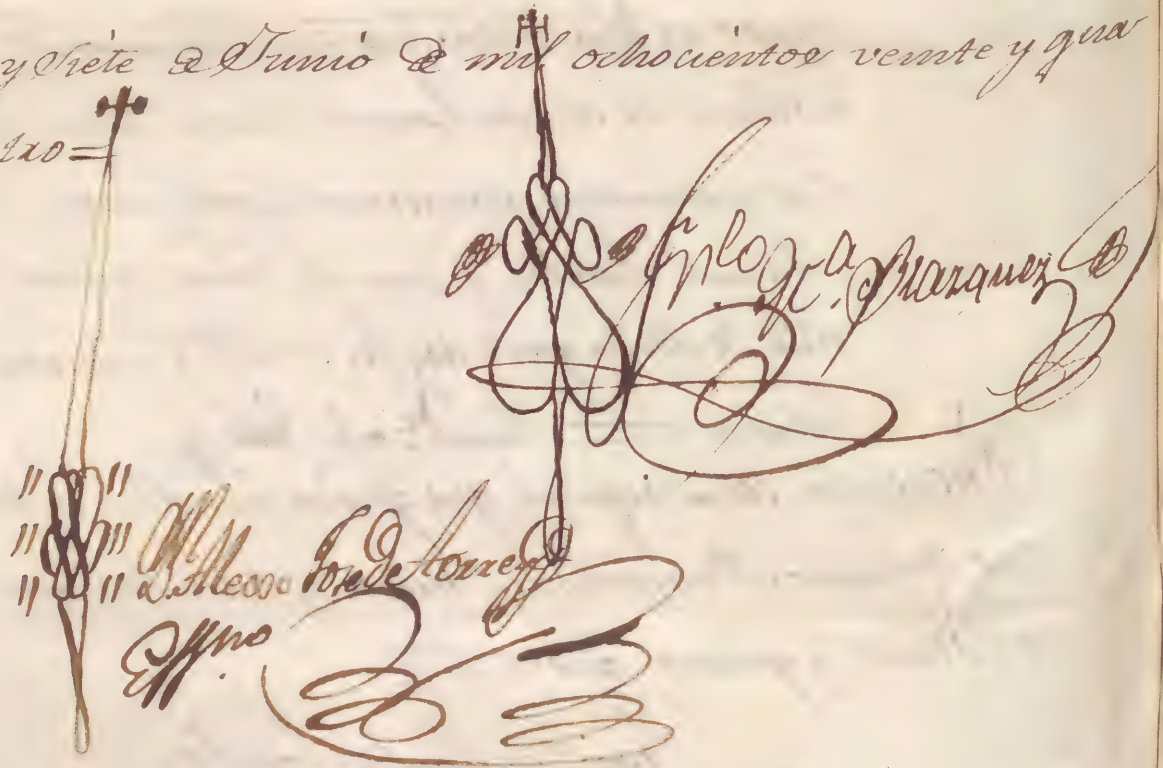 y Siete de Junio de mil ochocientos veinte y qua
tro=
Gr.a Blazquez
Jose de Torres
Essno